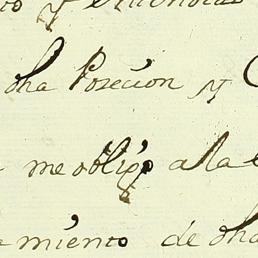 dha Posecion y
me obligo a la
miento de dha